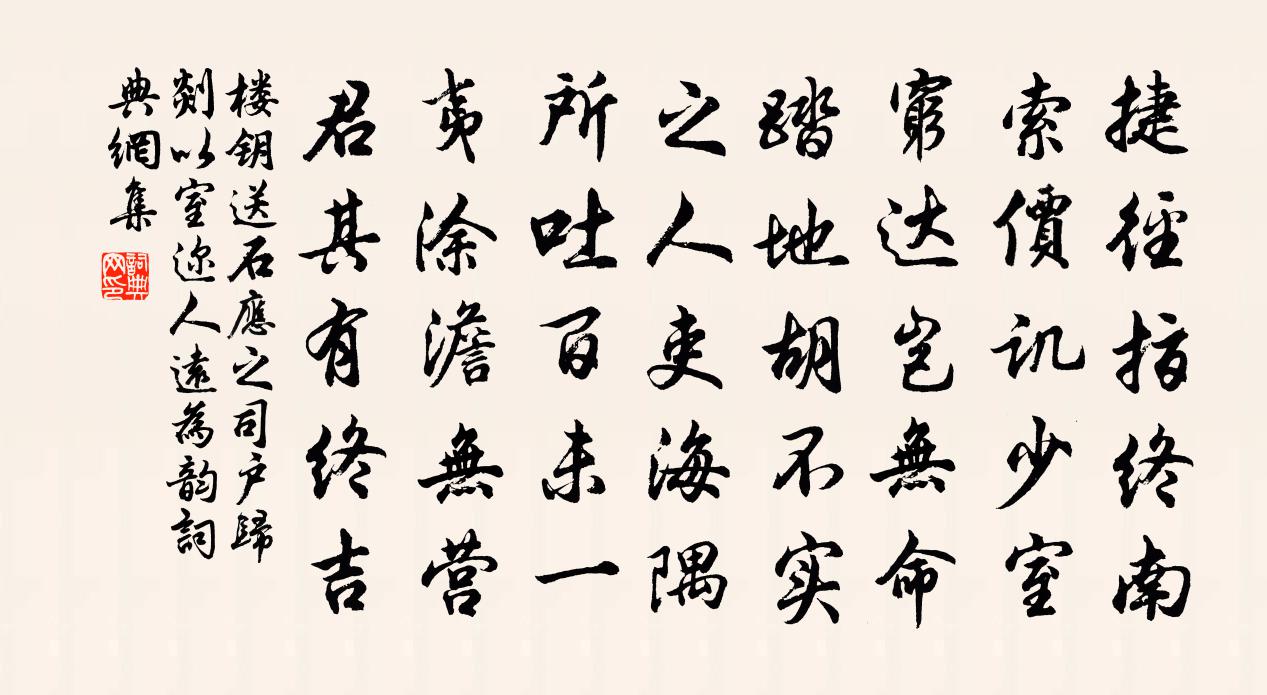 捷径指终南
索價讥少室
窮达岂無命
踏地胡不实
之人吏海隅
所吐百未一
夷涂澹無营
君其有终吉
楼钥送石應之司户歸
剡以室迩人遠為韵詞
典網集
詞典网印